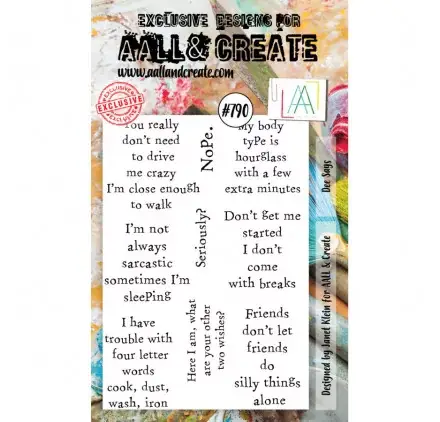 EXCLUSIVE DESIGNS FOR
AALL & CREATE
www.aallandcreate.com
EXCLUSIVE
#790
AA
You really
don't need
to drive
me crazy
I'm close enough
to walk
NoPe.
My body
tyPe is
hourglass
with a few
extra minutes
I'm not
always
sarcastic
sometimes I'm
sleePing
Seriously?
Don't get me
started
I don't
come
with breaks
I have
trouble with
four letter
words
cook, dust,
wash, iron
Here I am, what
are your other
two wishes?
Friends
don't let
friends
do
silly things
alone
Dee Says
Designed by Janet Klein for AALL & Create